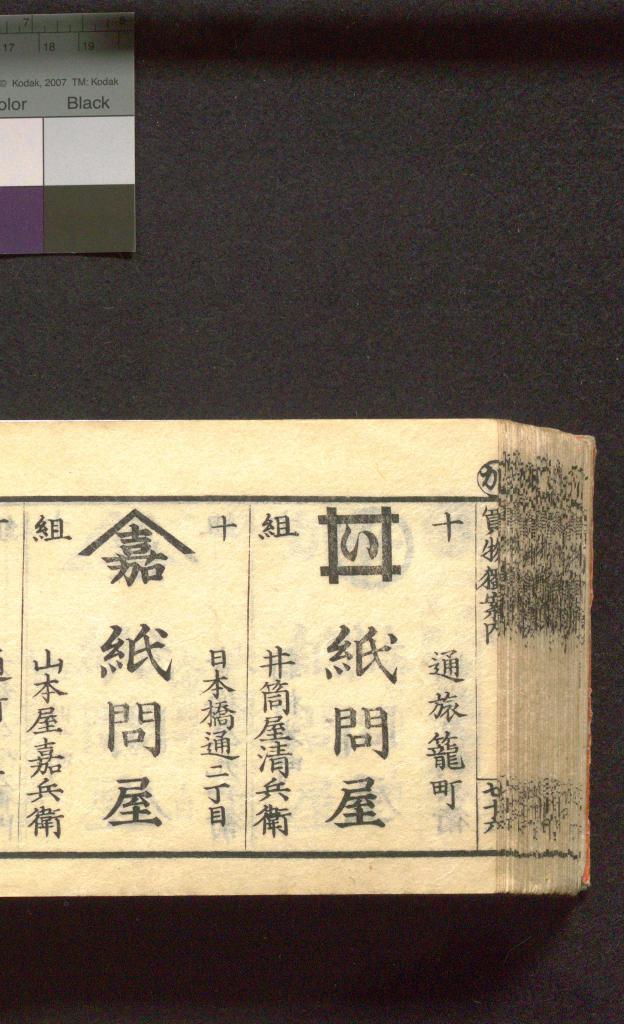 7
8
17 18 19
© Kodak, 2007 TM: Kodak
olor Black
か
買物独案内
七十六
十
組
通旅籠町
い
紙問屋
井筒屋清兵衛
十
組
日本橋通二丁目
嘉
紙問屋
山本屋嘉兵衛